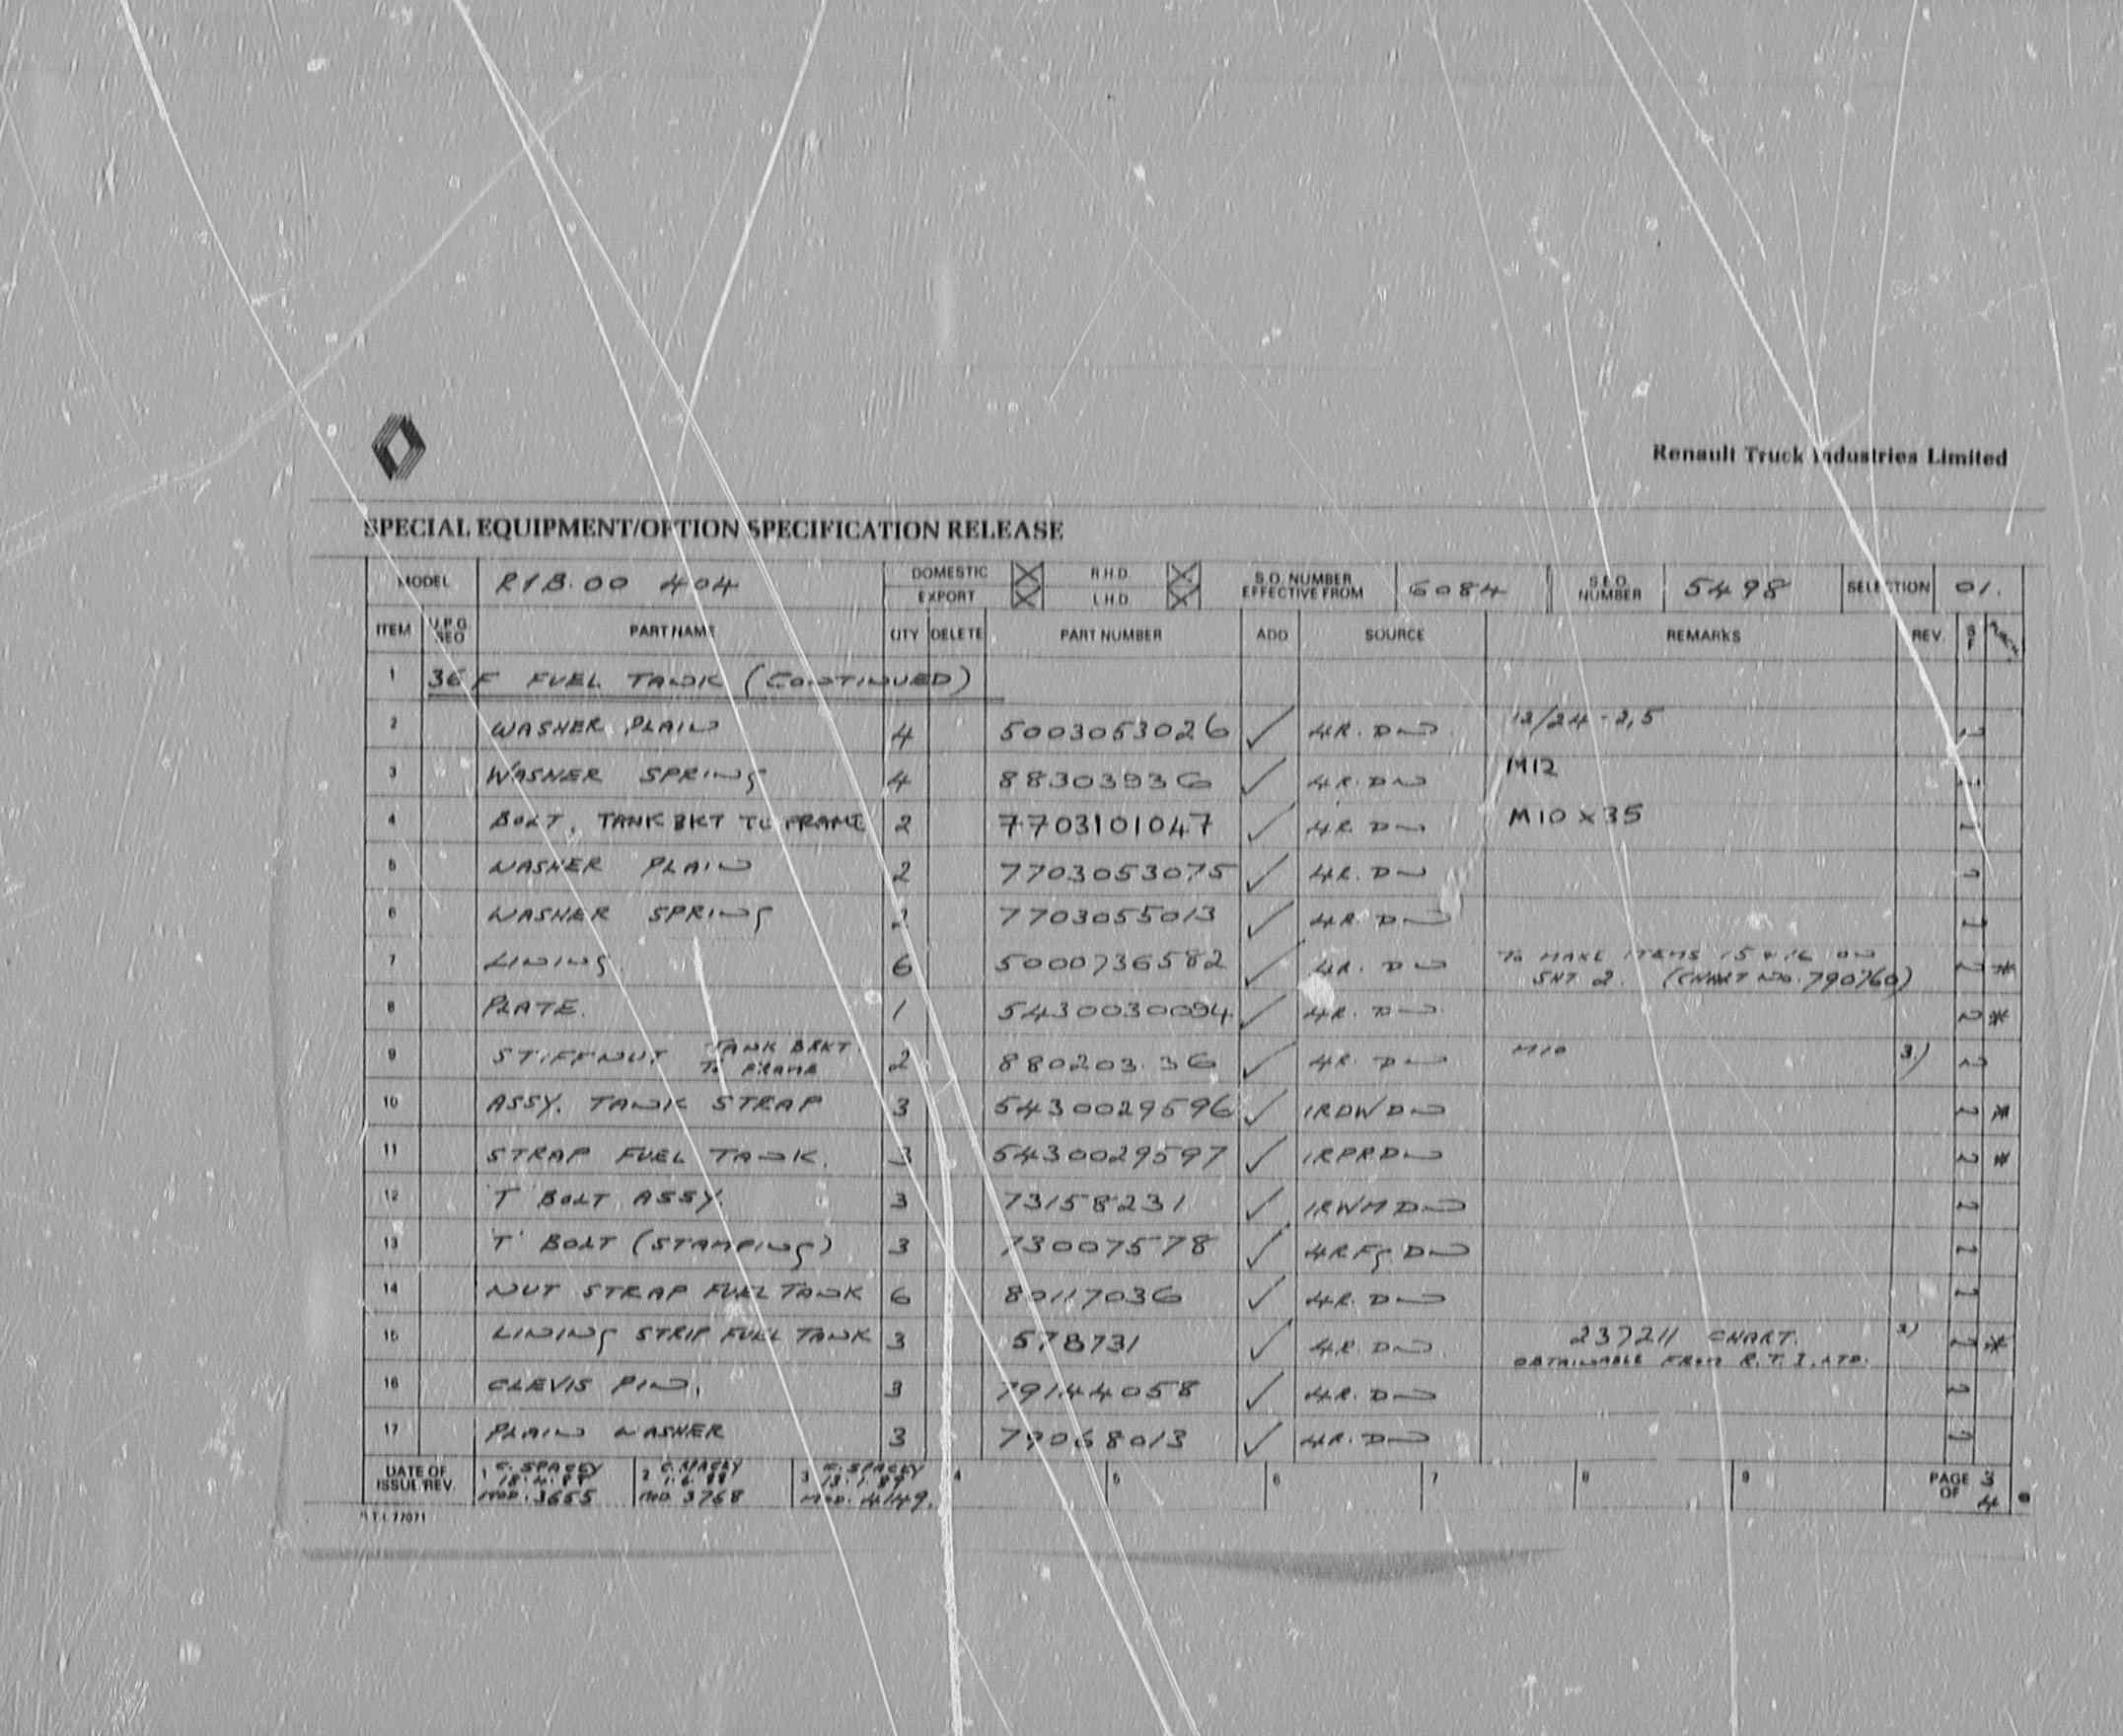 Renault Truck Industries Limited
SPECIAL EQUIPMENT/OPTION SPECIFICATION RELEASE
MODEL R1B.00 404 DOMESTIC EXPORT R.H.D. L.H.D. S.O. NUMBER EFFECTIVE FROM 6084 S.E.O. NUMBER 5498 SELECTION 01.
ITEM U.P.G. SEQ PART NAME QTY DELETE PART NUMBER ADD SOURCE REMARKS REV.
1 36F FUEL TANK (CONTINUED)
2 WASHER PLAIN 4 5003053026 ✓ 4R.DN 13/24-2,5
3 WASHER SPRING 4 88303936 ✓ 4R.DN M12
4 BOLT, TANK BKT TO FRAME 2 7703101047 ✓ 4R DN M10 x 35
5 WASHER PLAIN 2 7703053075 ✓ 4R.DN
6 WASHER SPRING 2 7703055013 ✓ 4R.DN
7 LINING 6 5000736582 ✓ 4R.DN TO MAKE ITEMS 15 & 16 ON
SHT 2. (CHART NO. 790760) *
8 PLATE. 1 5430030094 ✓ 4R.DN *
9 STIFFNUT TANK BRKT. TO FRAME 2 880203.36 ✓ 4R.DN M10 3.)
10 ASSY. TANK STRAP 3 5430029596 ✓ 1RDWDN *
11 STRAP FUEL TANK. 3 5430029597 ✓ 1RPRDN *
12 'T' BOLT ASSY. 3 73158231 ✓ 1RWMDN
13 'T' BOLT (STAMPING) 3 73007578 ✓ 4RFG.DN
14 NUT STRAP FUEL TANK 6 80117036 ✓ 4R.DN
15 LINING STRIP FUEL TANK 3 578731 ✓ 4R.DN. 237211 CHART.
OBTAINABLE FROM R.T.I. LTD. *
16 CLEVIS PIN. 3 79144058 ✓ 4R.DN
17 PLAIN WASHER 3 79068013 ✓ 4R.DN
DATE OF ISSUE/REV. 1 C. SPACEY 18.4.88 MOD.3655 2 C. SPACEY 1.6.88 MOD 3768 3 C. SPACEY 13.1.89 MOD. 4149. 4 5 6 7 8 9 PAGE 3 OF 4
R.T.I. 77071